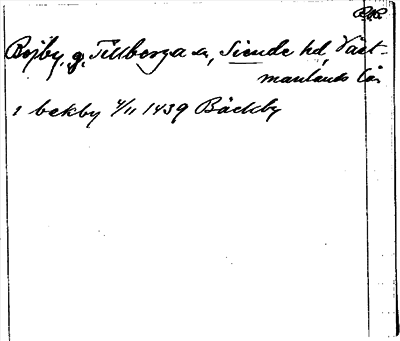 Bojby, g, Tillberga sn, Siende hd, Väst-
manlands län
i bekby 4/11 1439 Bäckby